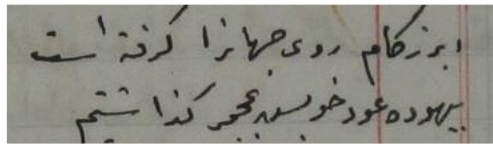 ابر زکام روی جهانرا گرفته است
بیهوده عود خویش بمجمر گذاشتیم